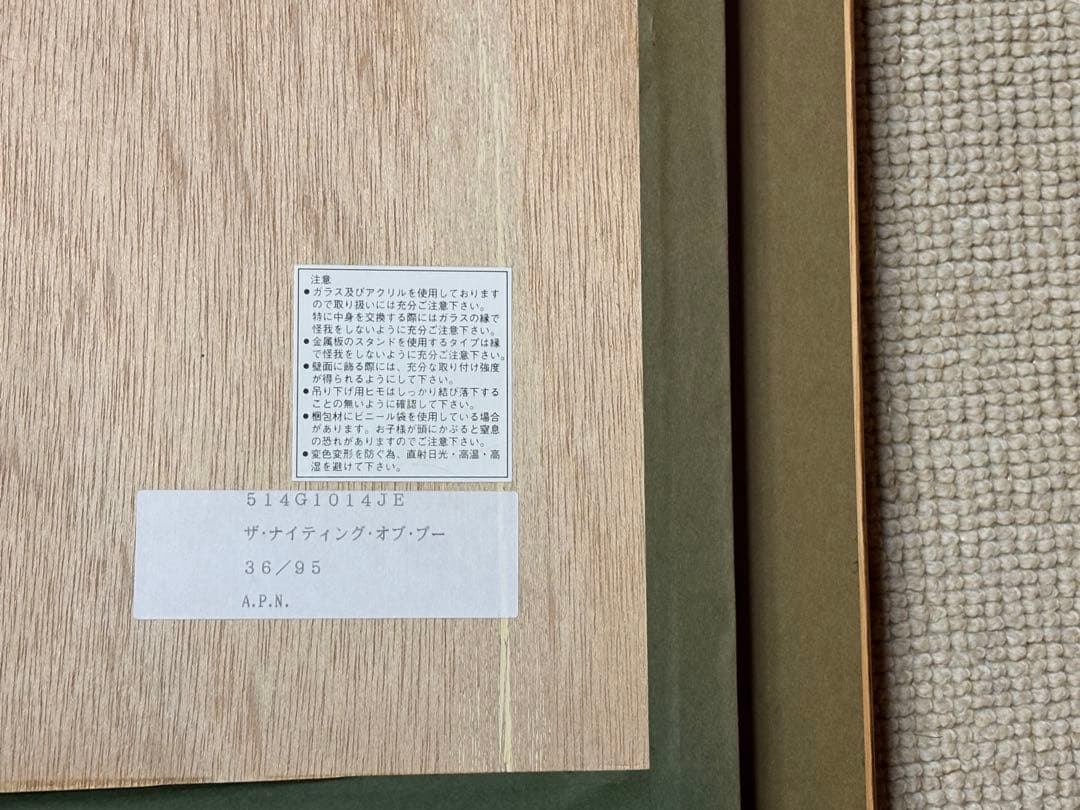 注意
●ガラス及びアクリルを使用しております
ので取り扱いには充分ご注意下さい。
特に中身を交換する際にはガラスの縁で
怪我をしないように充分ご注意下さい。
●金属板のスタンドを使用するタイプは縁
で怪我をしないように充分ご注意下さい。
●壁面に飾る際には、充分な取り付け強度
が得られるようにして下さい。
●吊り下げ用ヒモはしっかり結び落下する
ことの無いように確認して下さい。
●梱包材にビニール袋を使用している場合
があります。お子様が頭にかぶると窒息
の恐れがありますのでご注意下さい。
●変色変形を防ぐ為、直射日光・高温・高
湿を避けて下さい。
514G1014JE
ザ・ナイティング・オブ・プー
36/95
A.P.N.